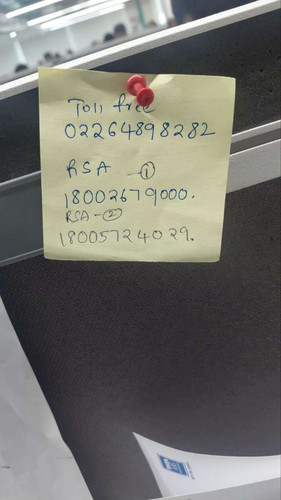 Toll free
02264898282
RSA - ①
18002679000.
RSA - ②
18005724029.